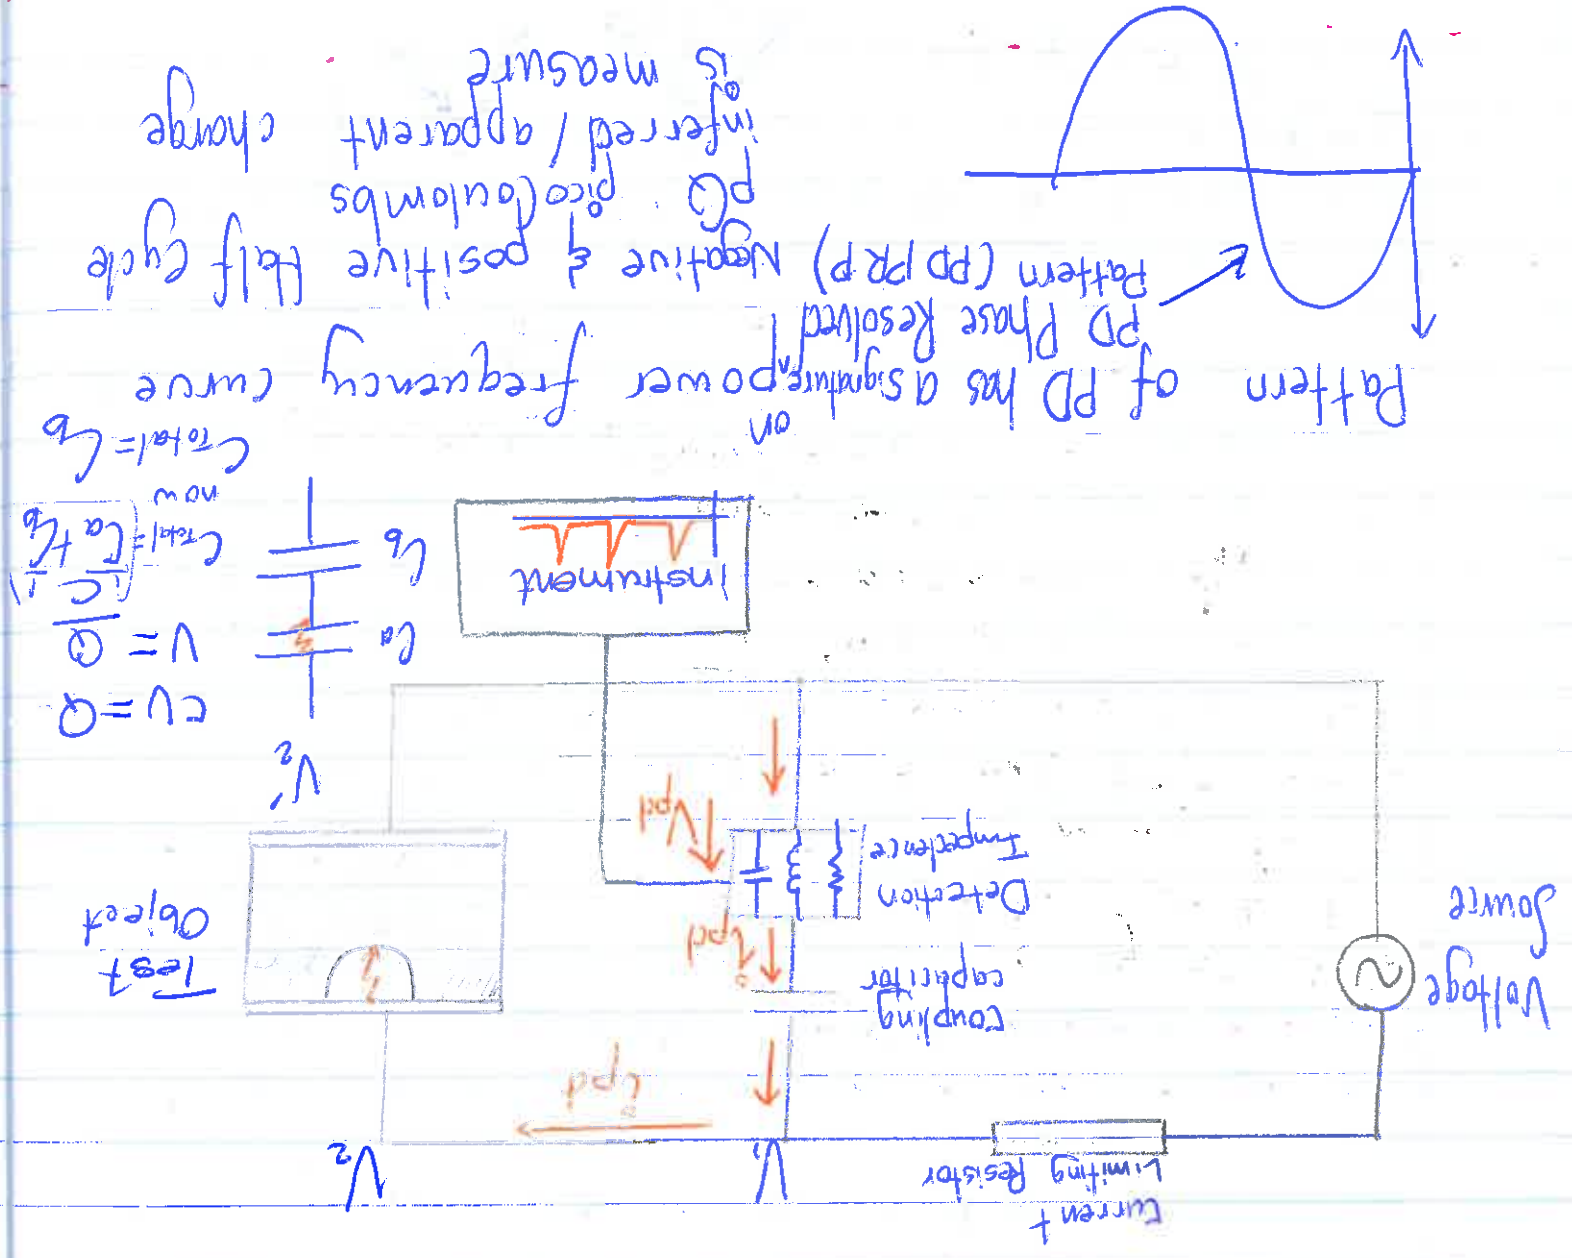 Current
Limiting Resistor
V1
V2
ipd
Voltage
Source
Coupling
capacitor
ipd
Detection
Impedence
Vpd
Test
Object
V2'
CV=Q
V=Q/C
Ca
Cb
CTotal=(1/Ca+1/Cb)
now
CTotal=Cb
Instrument
Pattern of PD has a signature on power frequency curve
PD Phase Resolved
Pattern (PDPRP) Negative & positive Half Cycle
pQ. picoCoulombs
inferred/apparent charge
is measure